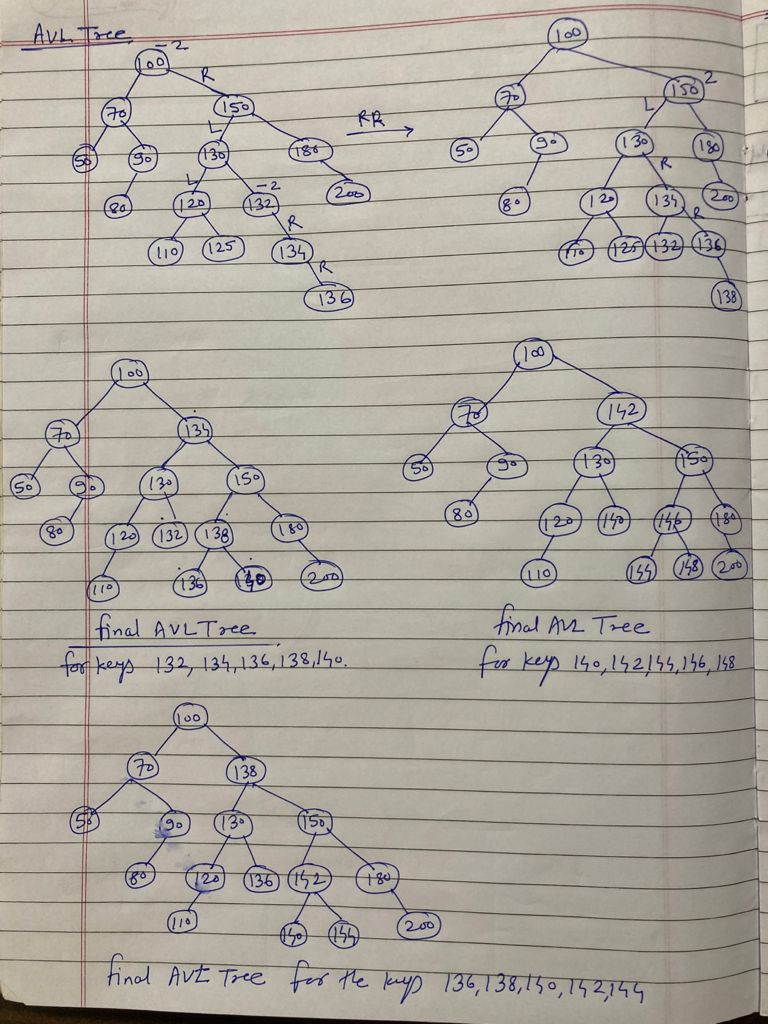 AVL Tree
100 -2
R
70 150
L
50 90 130 180
L -2
80 120 132 200
R
110 125 134
R
136
RR
100
70 150 2
L
50 90 130 180
R
80 120 134 200
R
110 125 132 136
138
100
70 134
50 90 130 150
80 120 132 138 180
110 136 200
final AVL Tree
for keys 132, 134, 136, 138, 140.
100
70 142
50 90 130 150
80 120 140 146 180
110 144 148 200
final AVL Tree
for keys 140, 142, 144, 146, 148
100
70 138
50 90 130 150
80 120 136 142 180
110 140 144 200
final AVL Tree for the keys 136, 138, 140, 142, 144